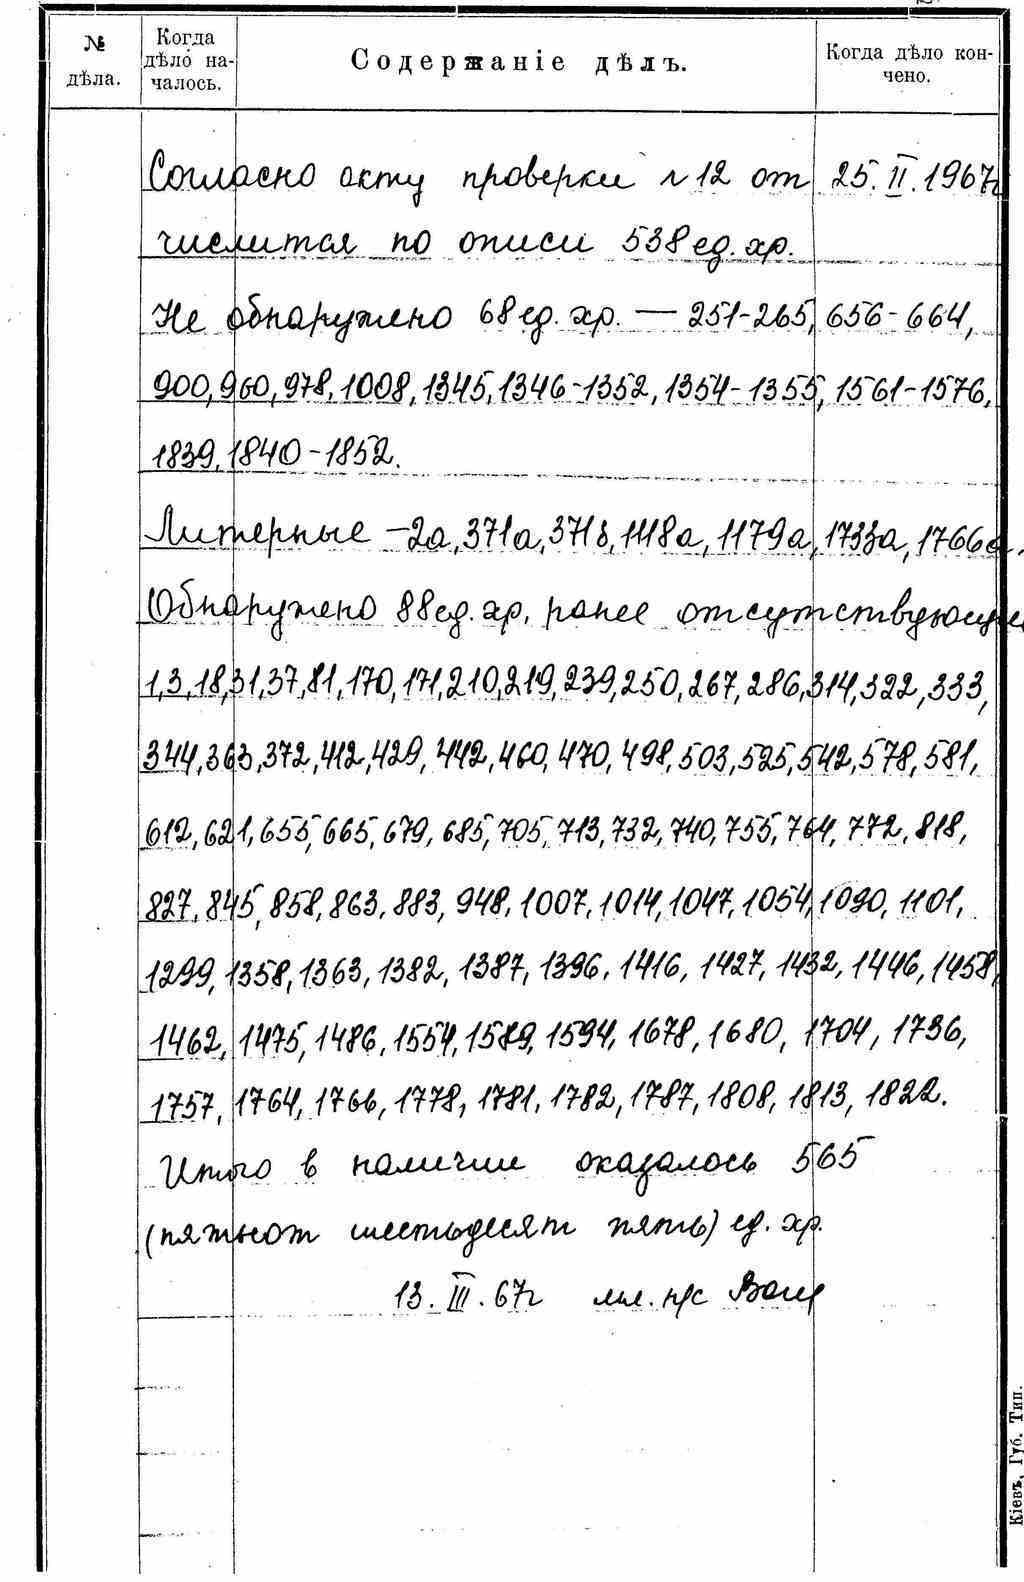 № дѣла.
Когда дѣло на-
чалось.
Содержаніе дѣлъ.
Когда дѣло кон-
чено.
Согласно акту проверки № 12 от 25.II.1967г
числится по описи 538 ед. хр.
Не обнаружено 68 ед. хр. — 251-265, 656-664,
900, 960, 978, 1008, 1345, 1346-1352, 1354-1355, 1561-1576,
1839, 1840-1852.
Литерные — 2а, 371а, 371б, 1118а, 1179а, 1733а, 1766а.
Обнаружено 88 ед. хр. ранее отсутствующих
1, 3, 18, 31, 37, 81, 170, 171, 210, 219, 239, 250, 267, 286, 314, 322, 333,
344, 363, 372, 412, 429, 442, 460, 470, 498, 503, 525, 542, 578, 581,
612, 621, 655, 665, 679, 685, 705, 713, 732, 740, 755, 764, 772, 818,
827, 845, 858, 863, 883, 948, 1007, 1014, 1047, 1054, 1090, 1101,
1299, 1358, 1363, 1382, 1387, 1396, 1416, 1427, 1432, 1446, 1458,
1462, 1475, 1486, 1554, 1589, 1594, 1678, 1680, 1704, 1736,
1757, 1764, 1766, 1778, 1781, 1782, 1787, 1808, 1813, 1822.
Итого в наличии оказалось 565
(пятьсот шестьдесят пять) ед. хр.
13.III.67г мл. н/с
Кіевъ, Губ. Тип.